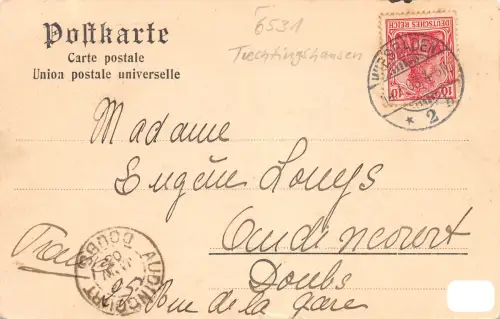 6531
Trechtingshausen
Postkarte
Carte postale
Union postale universelle
DEUTSCHES REICH
10 10
WIESBADEN
* 2
Madame
Eugène Louys
Audincourt
Doubs
Rue de la gare
AUDINCOURT DOUBS